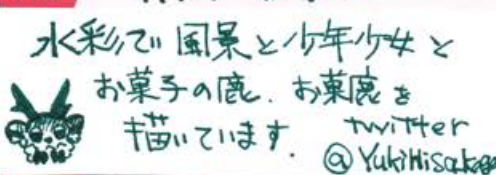 水彩で風景と少年少女と
お菓子の鹿、お菓鹿を
描いています.
twitter
@YukiHisakage